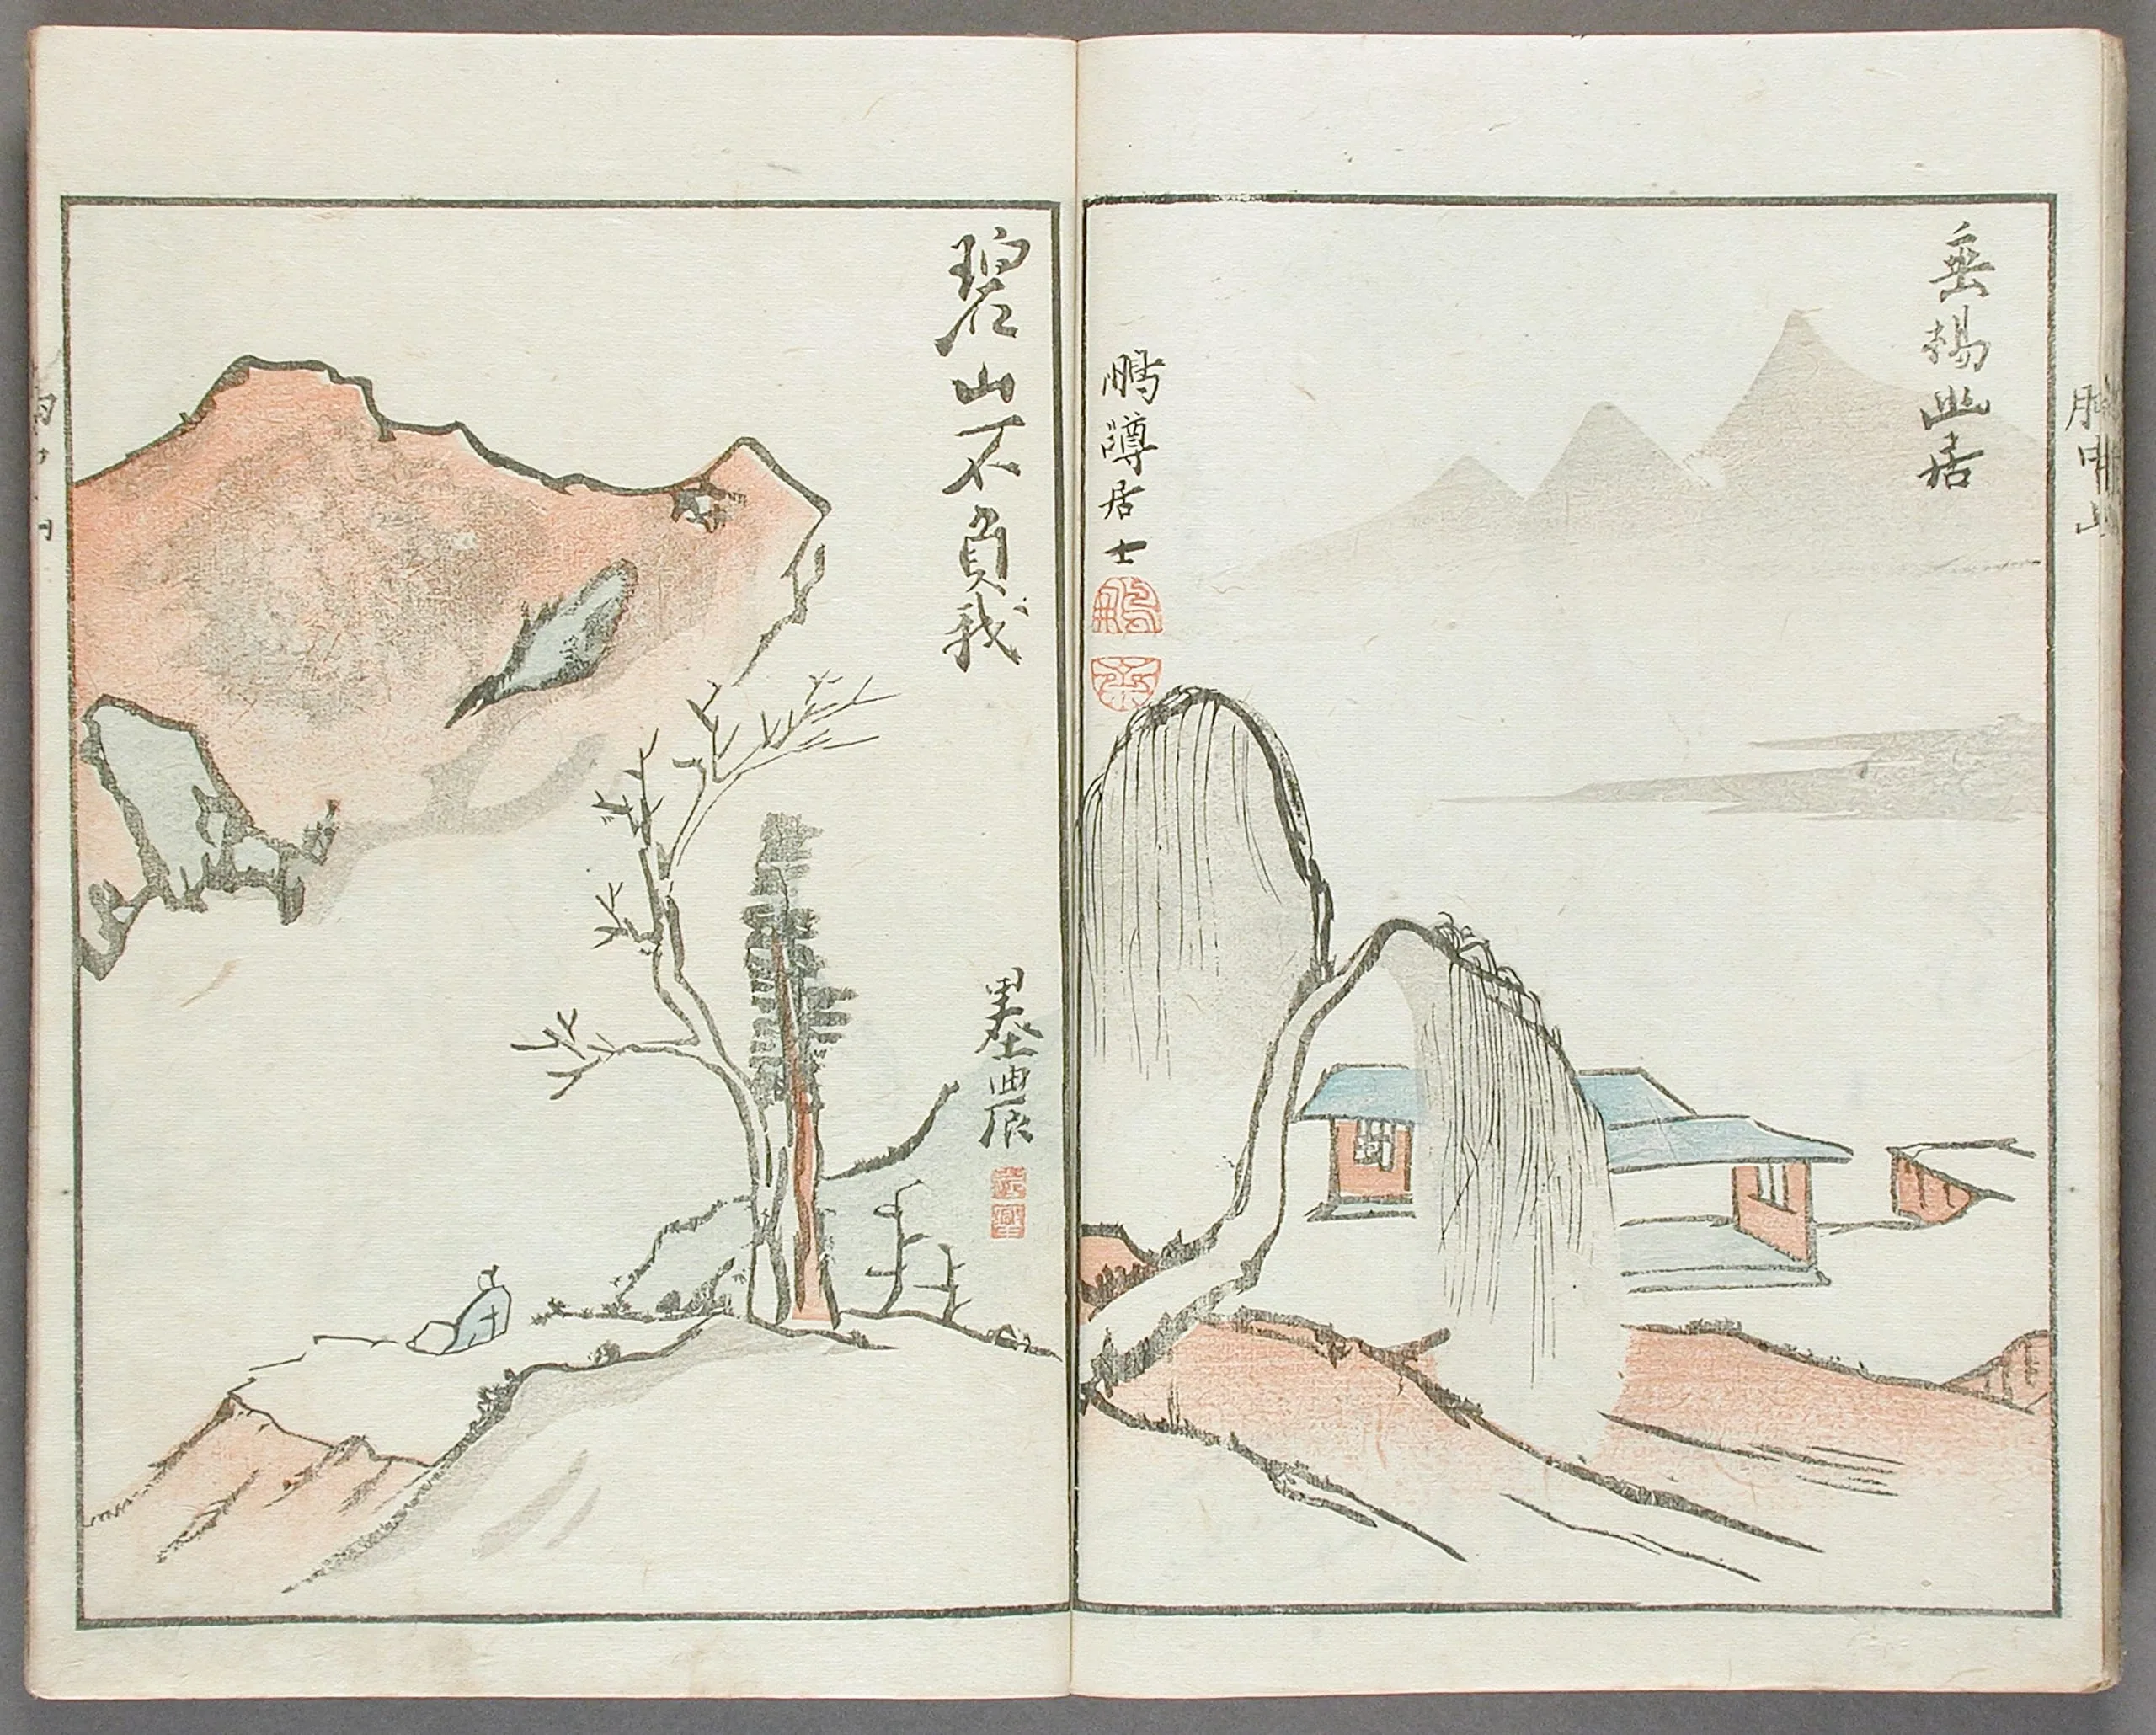 垂楊幽居
鵬
居士
碧山不負我
墨農
胸中山